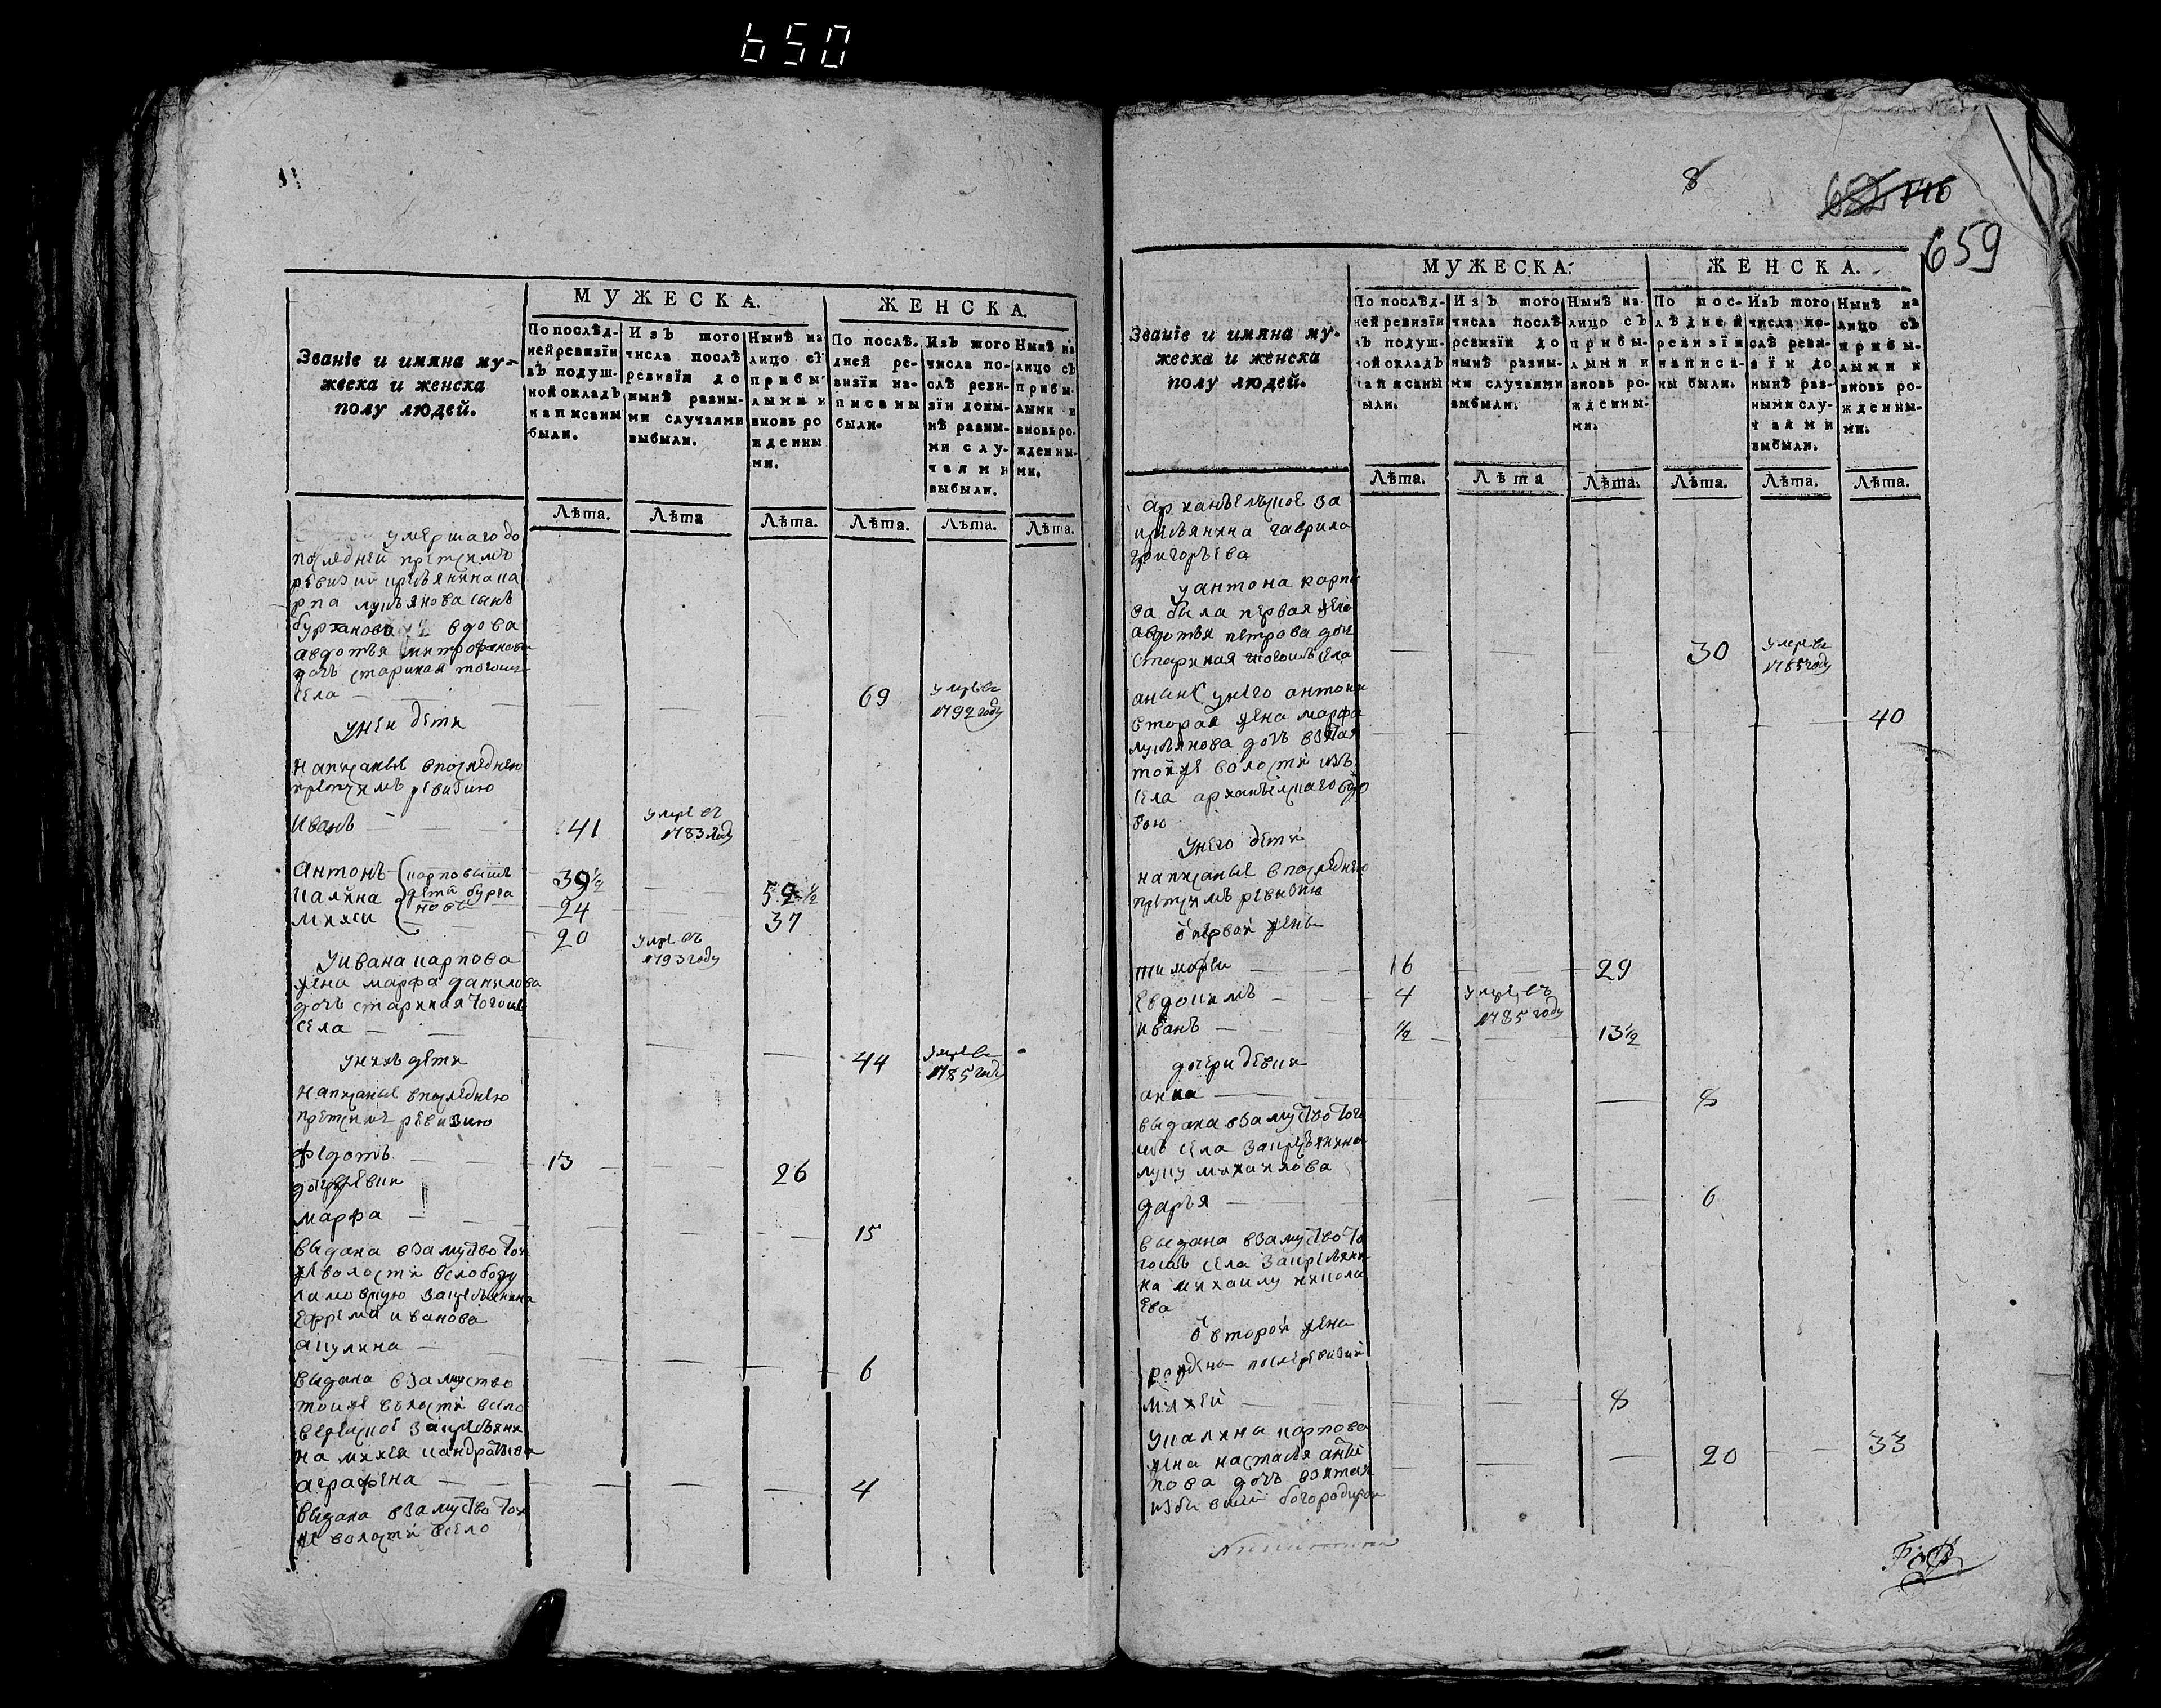 650
МУЖЕСКА.
ЖЕНСКА
Званїе и имяна му-
жеска и женска
полу людей.
По послѣд-
ней ревизїи
въ подуш-
ной окладъ
написаны
были.
Изъ того
числа послѣ
ревизїи до
нынѣ разны-
ми случаями
выбыли.
Нынѣ на
лицо съ
прибы-
лыми и
вновь ро
жденны
ми.
По послѣ-
дней ре-
визїи на-
писаны
были.
Изъ того
числа по-
слѣ реви-
зїи доны-
нѣ разны-
ми слу-
чаями
выбыли.
Нынѣ на
лицо съ
прибы-
лыми и
вновь ро-
жденны-
ми.
Лѣта. Лѣта Лѣта. Лѣта. Лѣта. Лѣта.
умершаго до
последней пред симъ
ревизии крестьянина ка
рпа лукьянова сынъ
бурханова вдова
авдотья митрофанова
дочь старикая тогошъ
села 69 умре въ
1792 году
унеи дети
написаные впоследнею
предсимъ ревизию
Иванъ 41 умре въ
1783 году
Антонъ карповы 39½ 52½
Калина дети бурха 24 37
михеи новы 20 умре въ
1793 году
уивана карпова
жена марфа данилова
дочь старикая тогошъ
села 44 умре въ
1785 году
унихъ дети
написаные впоследнею
предсимъ ревизию
Федотъ 13 26
дочери девки
марфа 15
выдана взамуство тои
же волости вслободу
закрестьянина
Ефрема иванова
акулина 6
выдана взамуство
тоиже волости всело
закрестьяни
на михея кандратьева
аграфена 4
выдана взамуство тои
же волости всело
8
716
659
МУЖЕСКА.
ЖЕНСКА.
Званїе и имяна му-
жеска и женска
полу людей.
По послѣд-
ней ревизїи
въ подуш-
ной окладъ
написаны
были.
Изъ того
числа послѣ
ревизїи до
нынѣ разны-
ми случаями
выбыли.
Нынѣ на-
лицо съ
прибы-
лыми и
вновь ро-
жденны-
ми.
По пос-
лѣдней
ревизїи
написа-
ны были.
Изъ того
числа по-
слѣ реви-
зїи до
нынѣ раз-
ными слу-
чаями
выбыли.
Нынѣ на
лицо съ
прибы-
лыми и
вновь ро-
жденны-
ми.
Лѣта. Лѣта Лѣта. Лѣта. Лѣта. Лѣта.
Архангельское за
крестьянина гаврила
григорьева
уантона карпо
ва была первая жена
авдотья петрова дочь
старикая тогошъ села 30 умре въ
1785 году
аныне унего антона
вторая жена марфа 40
лукьянова дочь взятая
тойже волости изъ
села архангельскаго вдо
вою
унего дети
написаные впоследнею
предсимъ ревизию
о первой жены
тимофеи 16 29
Евдокимъ 4 умре въ
1785 году
иванъ ½ 13½
дочери девки
анна 8
выдана взамуство того
шъ села закрестьянина
луку михаилова
дарья 6
выдана взамуство то
гошъ села закрестьяни
на михаилу никола
Ева
о второй жены
рождены послеревизии
михей 8
укалина карпова
жена настасья анти 20 33
пова дочь взятая
избывшей богородицкои